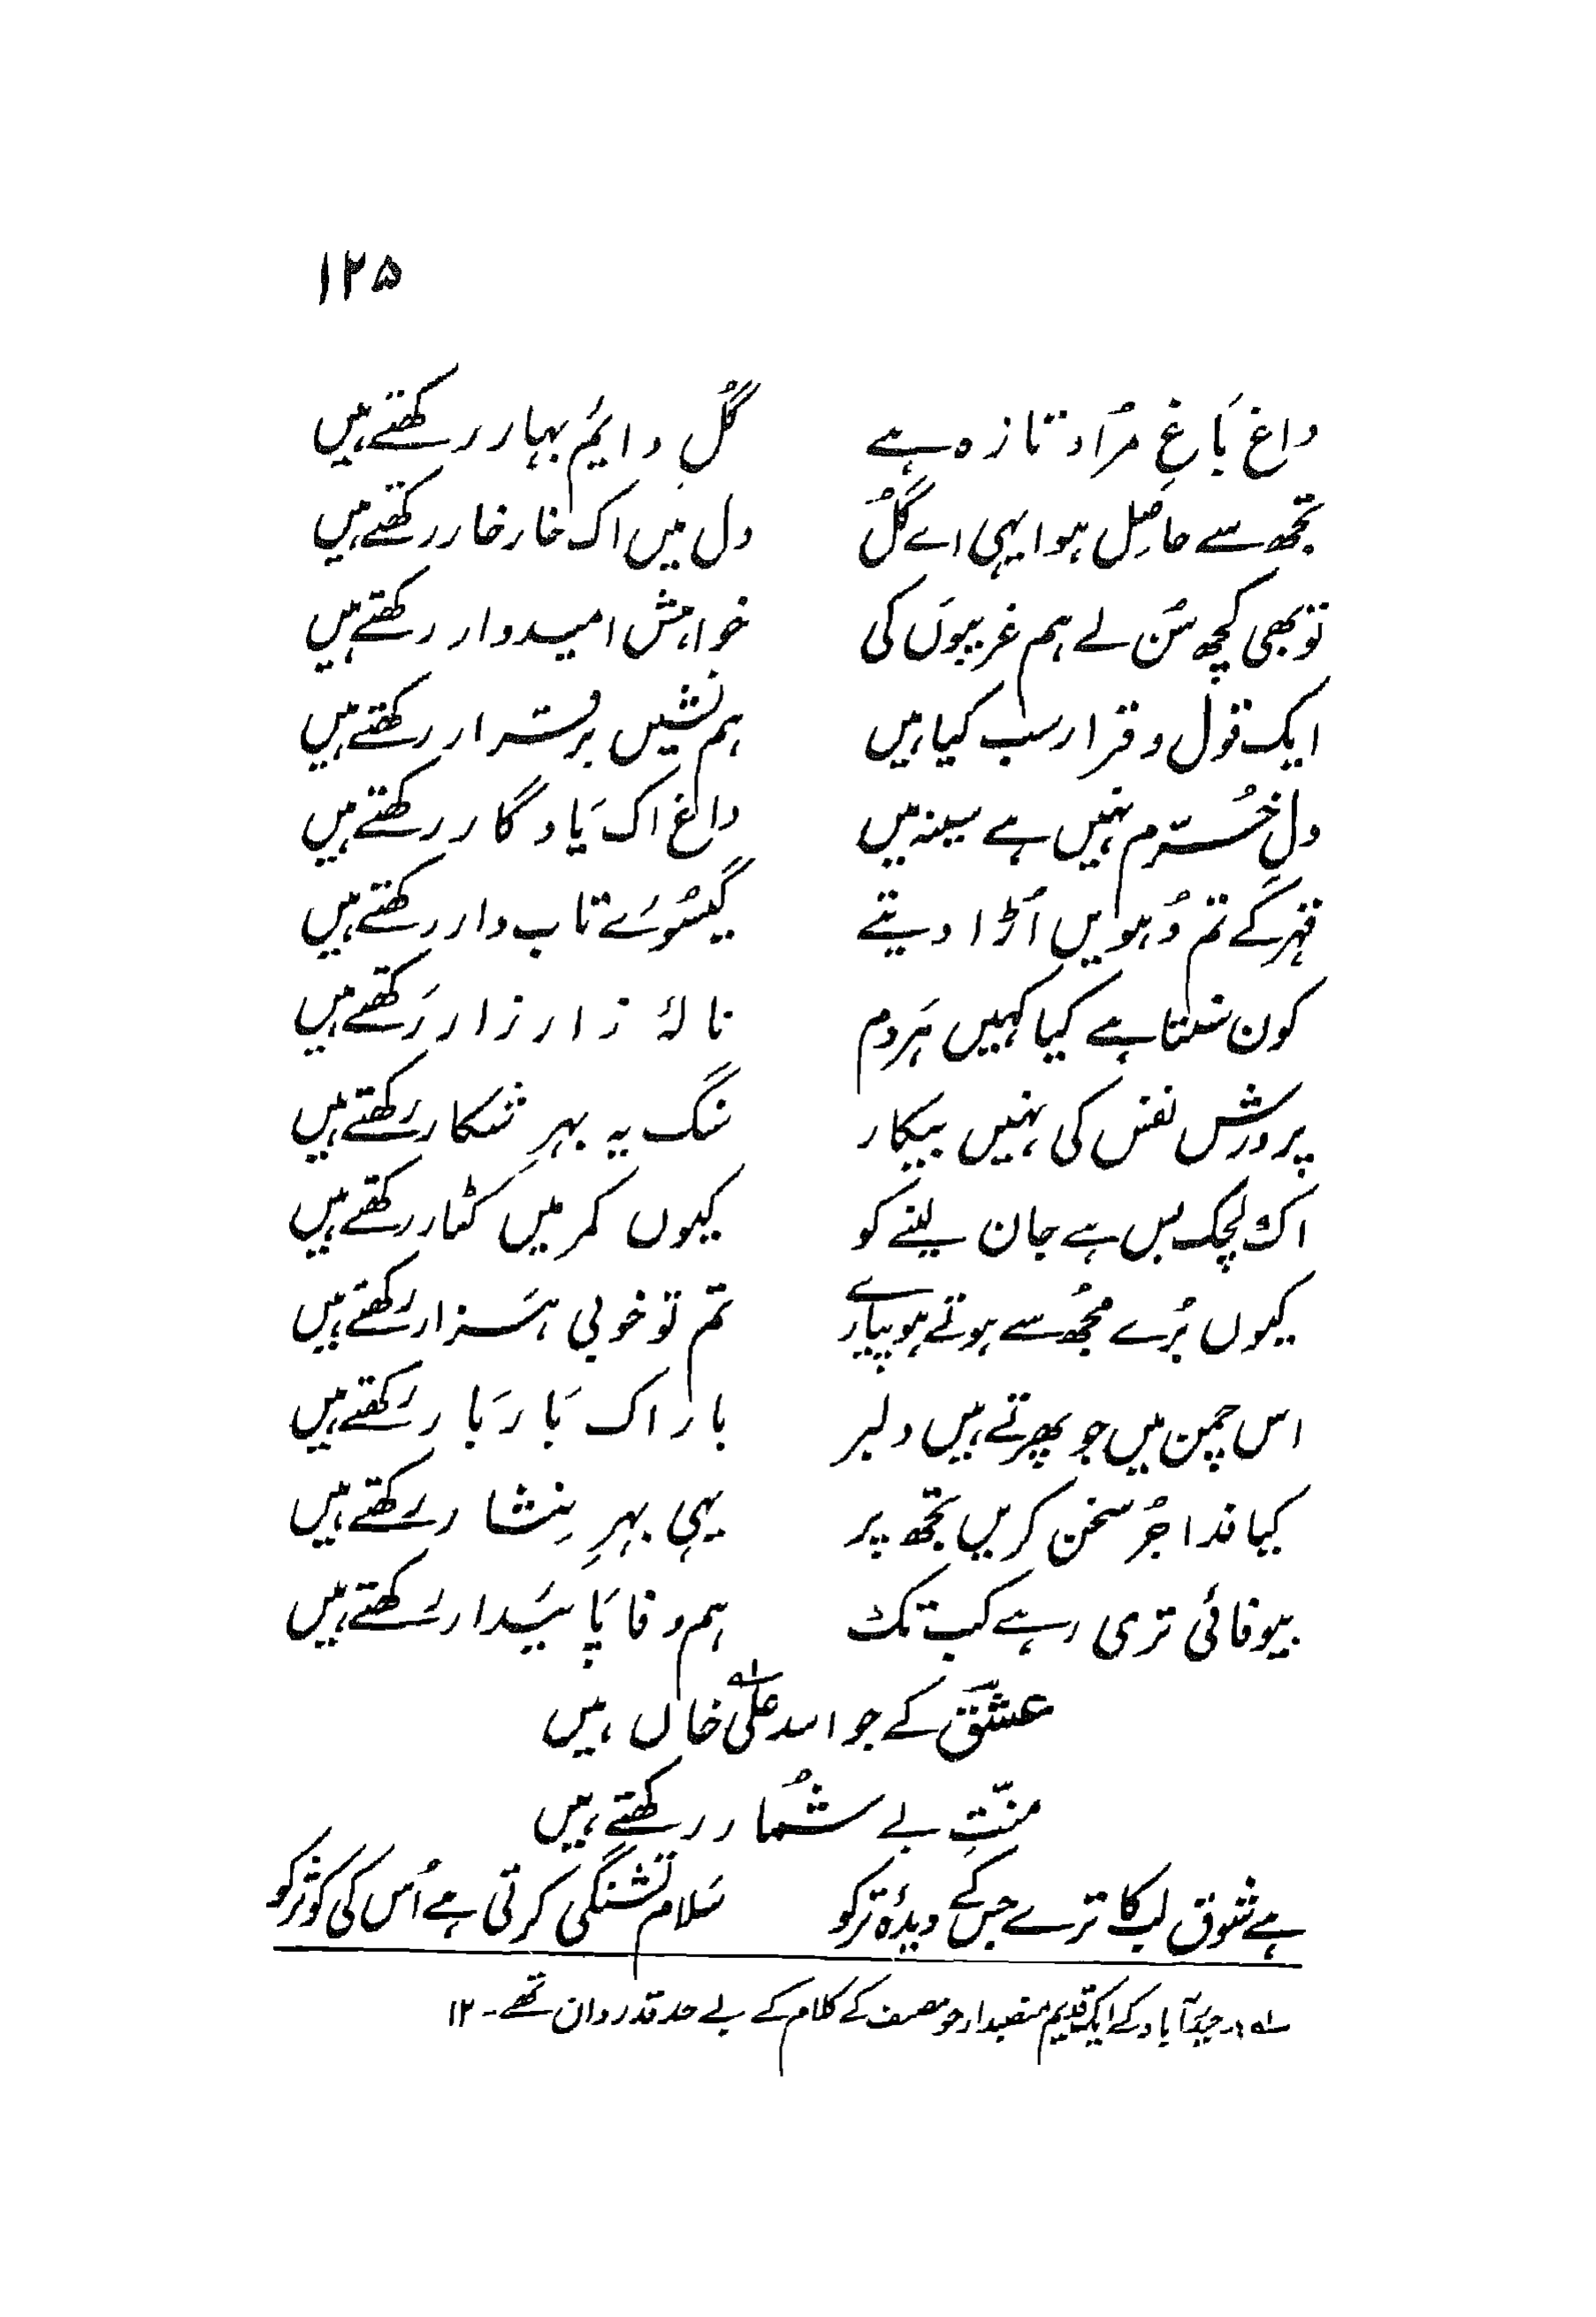 ۱۲۵
داغ بَاغِ مُرَاد تازہ ہے گُلِ دایَم بہار رکھتے ہیں
تجھ سے حاصِل ہوا یہی اے گُل دل میں اک خار خار رکھتے ہیں
تو بھی کچھ سُن لے ہم غریبوں کی خواہش امیدوار رکھتے ہیں
ایک قول و قرار سب کیا ہیں ہم نشیں برقرار رکھتے ہیں
دلِ خُرّم نہیں ہے سینہ میں داغ اک یَادگار رکھتے ہیں
قہر گے تم دُہویں اُڑا دیتے گیسُوئے تاب دار رکھتے ہیں
کون سنتا ہے کیا کہیں ہَر دم نالۂ زار زار رَکھتے ہیں
پرورش نفس کی نہیں بیکار سگ یہ بہرِ شکار رکھتے ہیں
اک لچک بس ہے جان لینے کو کیوں کمر میں کٹار رکھتے ہیں
کیوں بُرے مجُھ سے ہوتے ہو پیارے تم تو خوبی ہَزار رکھتے ہیں
اس چمن میں جو پھرتے ہیں دلبر بار اک بَار بَار رکھتے ہیں
کیا فدا جُز سخن کریں تجھ پر یہی بہرِ نِثار رکھتے ہیں
بیوفائی تری رہے کب تک ہم وفا پَائیدار رکھتے ہیں
عشق کے جو اسد علی خاں ۱؎ ہیں
منّتِ بے شُمار رکھتے ہیں
ہے شوق لب کا ترے جس کے دیدۂ تر کو سَلام تشنگی کرتی ہے اُس کی کوثر کو
۱؎ حیدرآباد کے ایک قدیم منصبدار جو مصنف کے کلام کے بے حد قدردان تھے۔ ۱۲